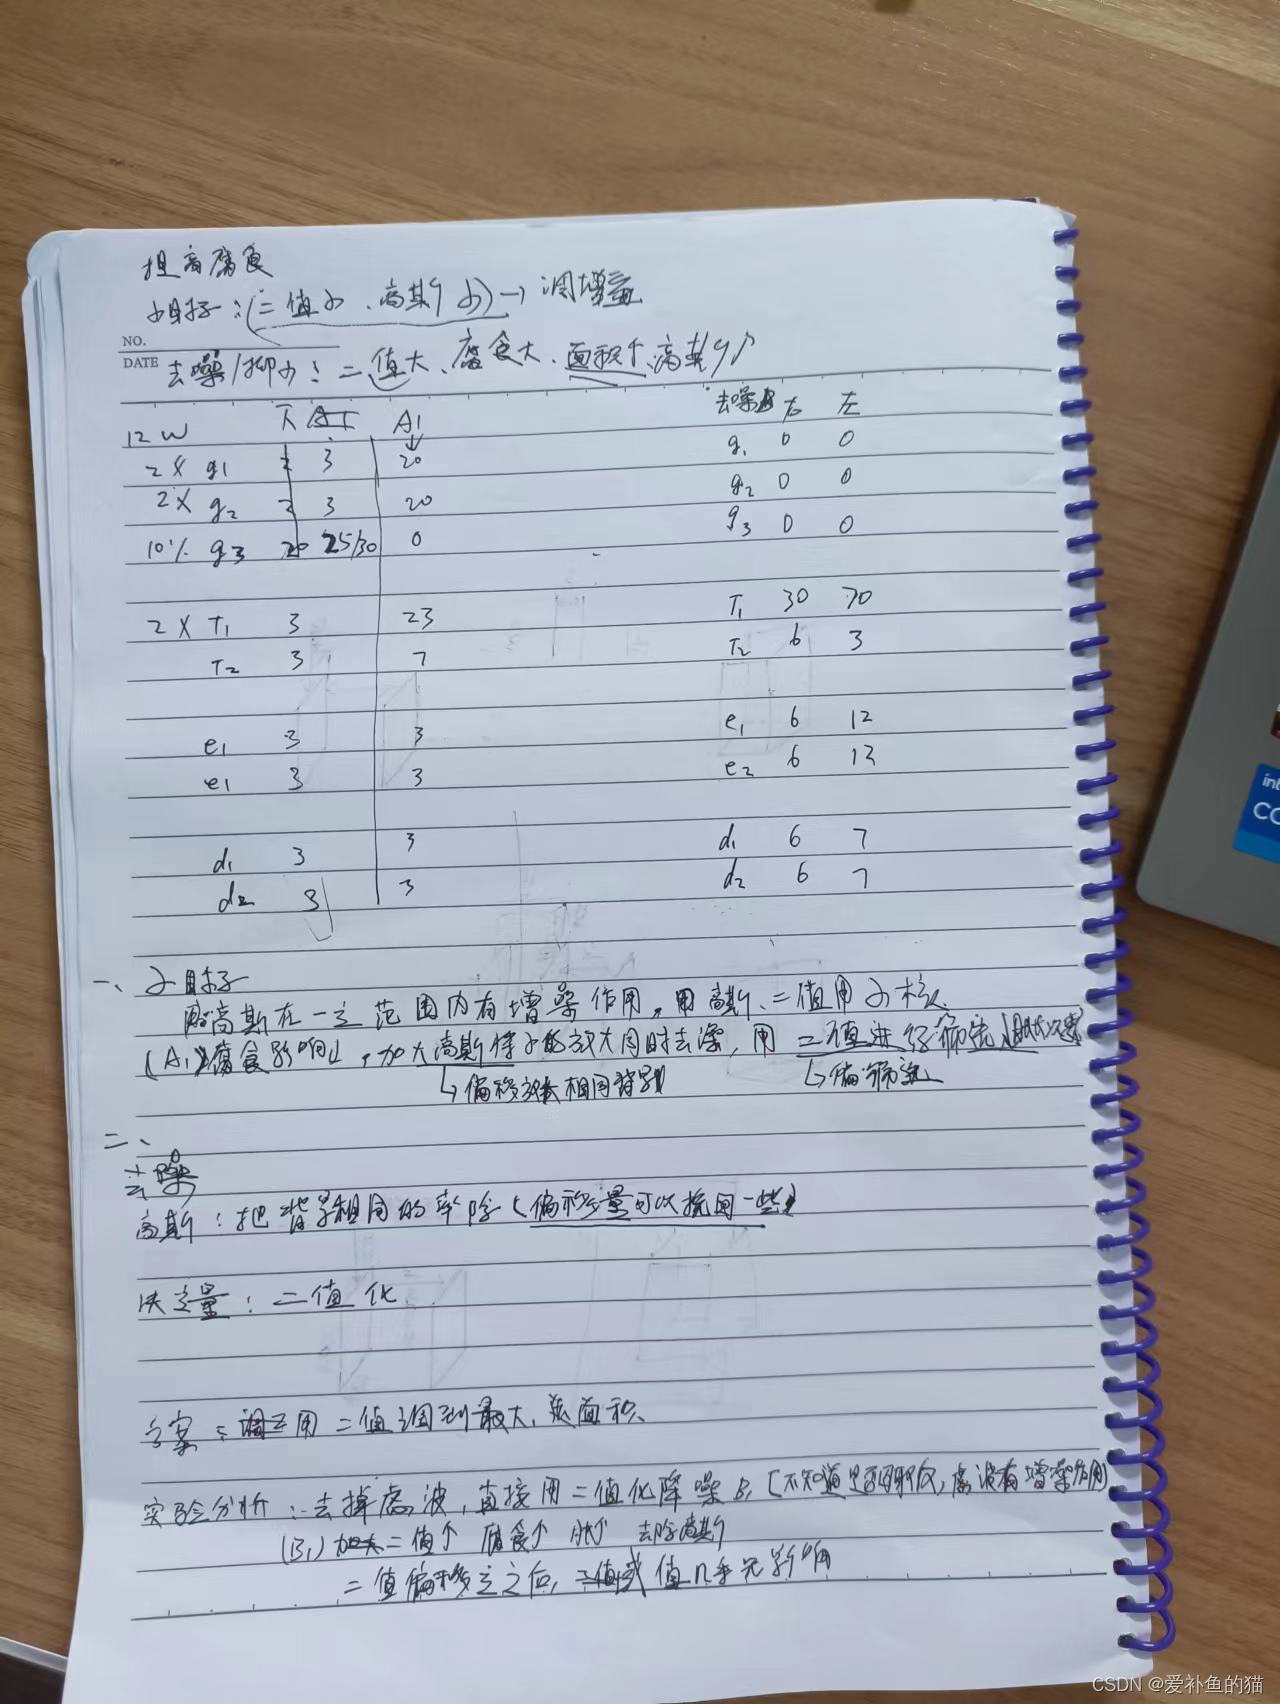 提高腐食
小目标:(二值小、高斯小)→调增益
NO.
DATE 去噪/抑小:二值大、腐食大、面积个、高斯个
12W A1 去噪 右 左
2X g1 3 20 g1 0 0
2X g2 3 20 g2 0 0
10% g3 20 25/30 0 g3 0 0
2X T1 3 23 T1 30 70
T2 3 7 T2 6 3
e1 3 3 e1 6 12
e1 3 3 e2 6 12
d1 3 3 d1 6 7
d2 3 3 d2 6 7
一、小目标
高斯在一定范围内有增噪作用,用高斯、二值用小核
(A1)腐食影响小,加大高斯 放大同时去噪,用二值进行筛选
↳偏移 相同背景 ↳偏
二、
去噪
高斯:把背景相同的 除(偏移量可以 一些)
决定量:二值化
方案: 用二值调到最大, 面积、
实验分析:去掉虑波,直接用二值化降噪B1(不知道是否 ,虑波有增噪作用)
(B1)加大二值个 腐食个 胀个 去除高斯
二值偏移定之后, 值几乎无影响
int
CO
CSDN @爱补鱼的猫